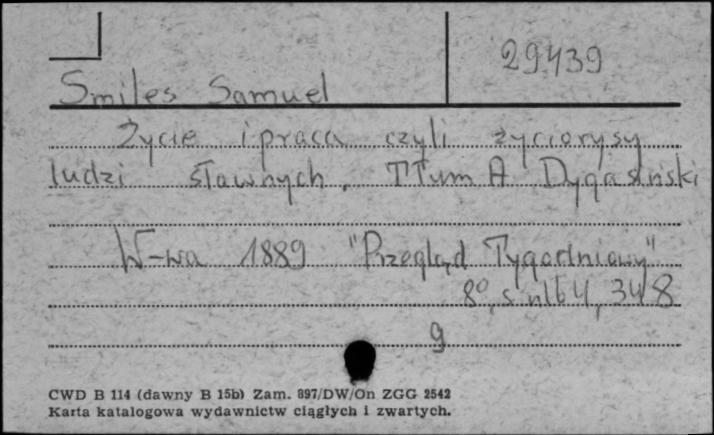 29439
Smiles Samuel
Życie i praca czyli życiorysy
ludzi sławnych. Tłum A Dygasiński
W-wa 1889 "Przegląd Tygodniowy"
8°, s. nlb 4, 348
g
CWD B 114 (dawny B 15b) Zam. 897/DW/On ZGG 2542
Karta katalogowa wydawnictw ciągłych i zwartych.